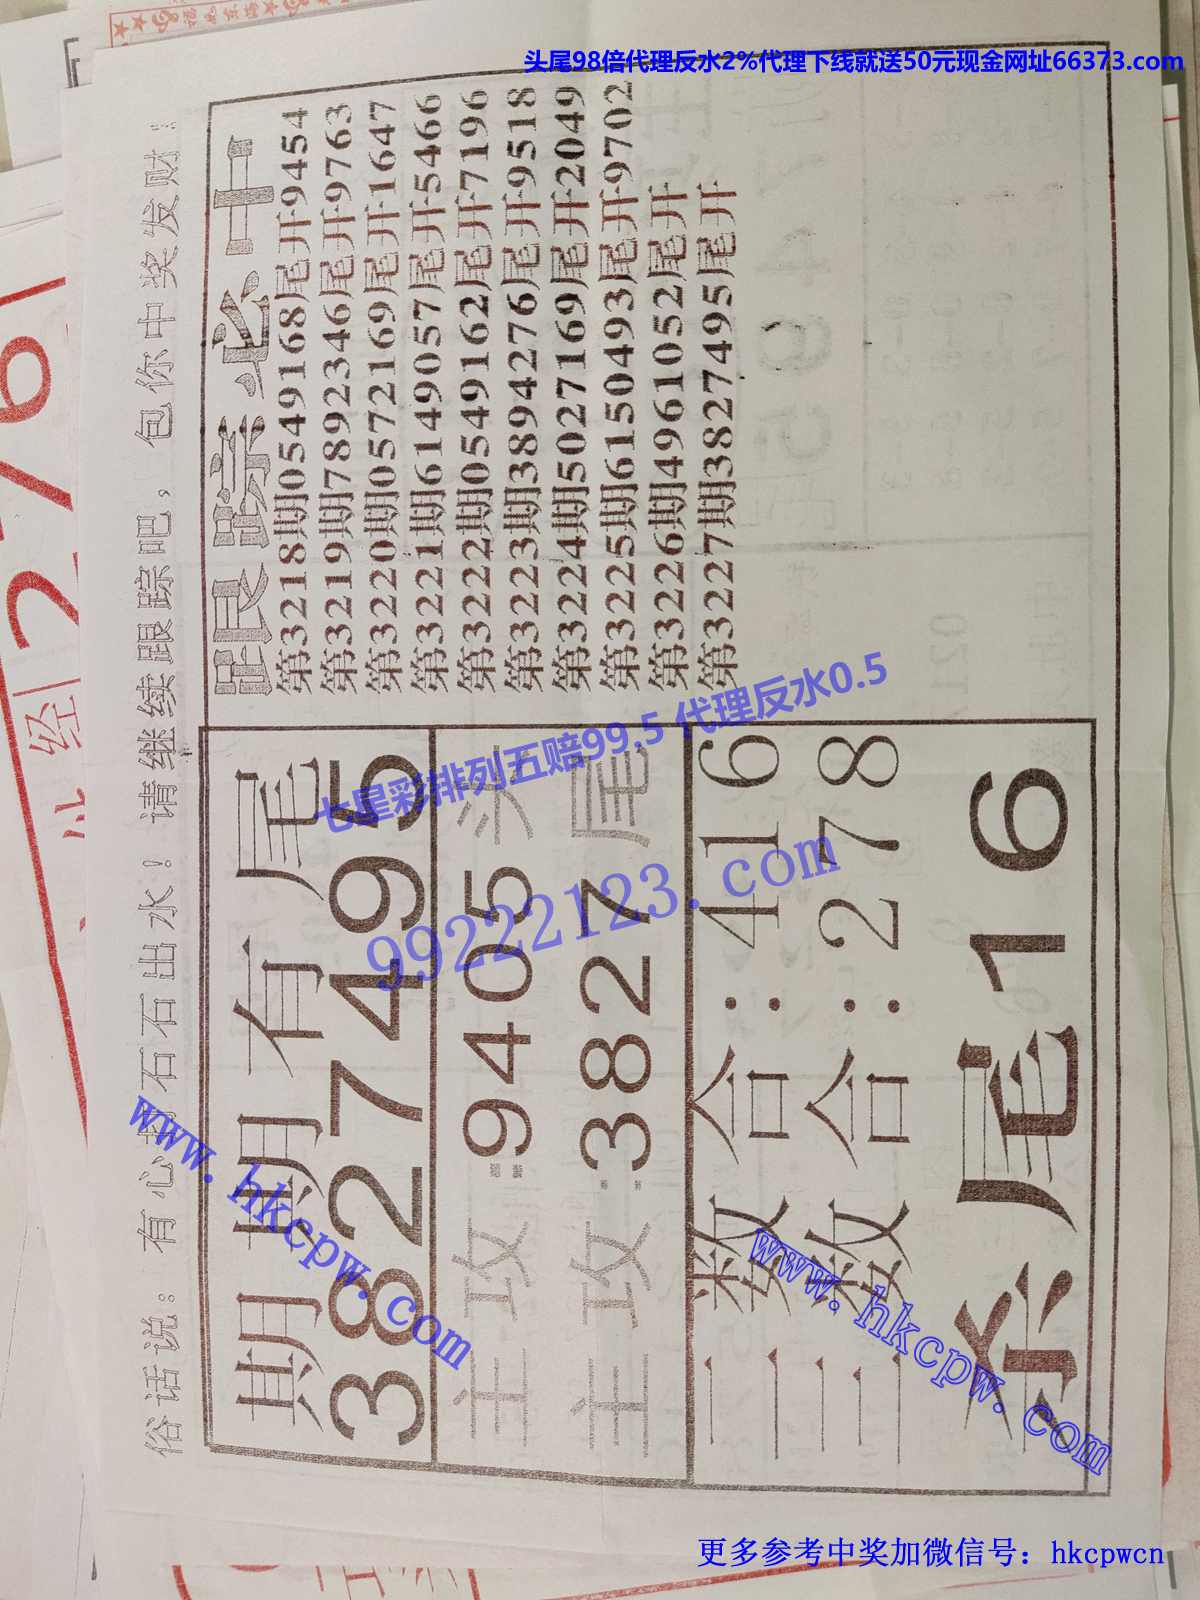 头尾98倍代理反水2%代理下线就送50元现金网址66373.com
俗话说：有心的石石出水！请继续跟踪吧，包你中奖发财！
跟踪必中
第3218期0549168尾开9454
第3219期7892346尾开9763
第3220期0572169尾开1647
第3221期6149057尾开5466
第3222期0549162尾开7196
第3223期3894276尾开9518
第3224期5027169尾开2049
第3225期6150493尾开9702
第3226期4961052尾开
第3227期3827495尾开
期期有尾
3827495
主攻:9405头
主攻:3827尾
三数合:416
三数合:278
杀尾16
276
经
七星彩排列五赔99.5 代理反水0.5
99222123.com
www.hkcpw.com
www.hkcpw.com
更多参考中奖加微信号：hkcpwcn